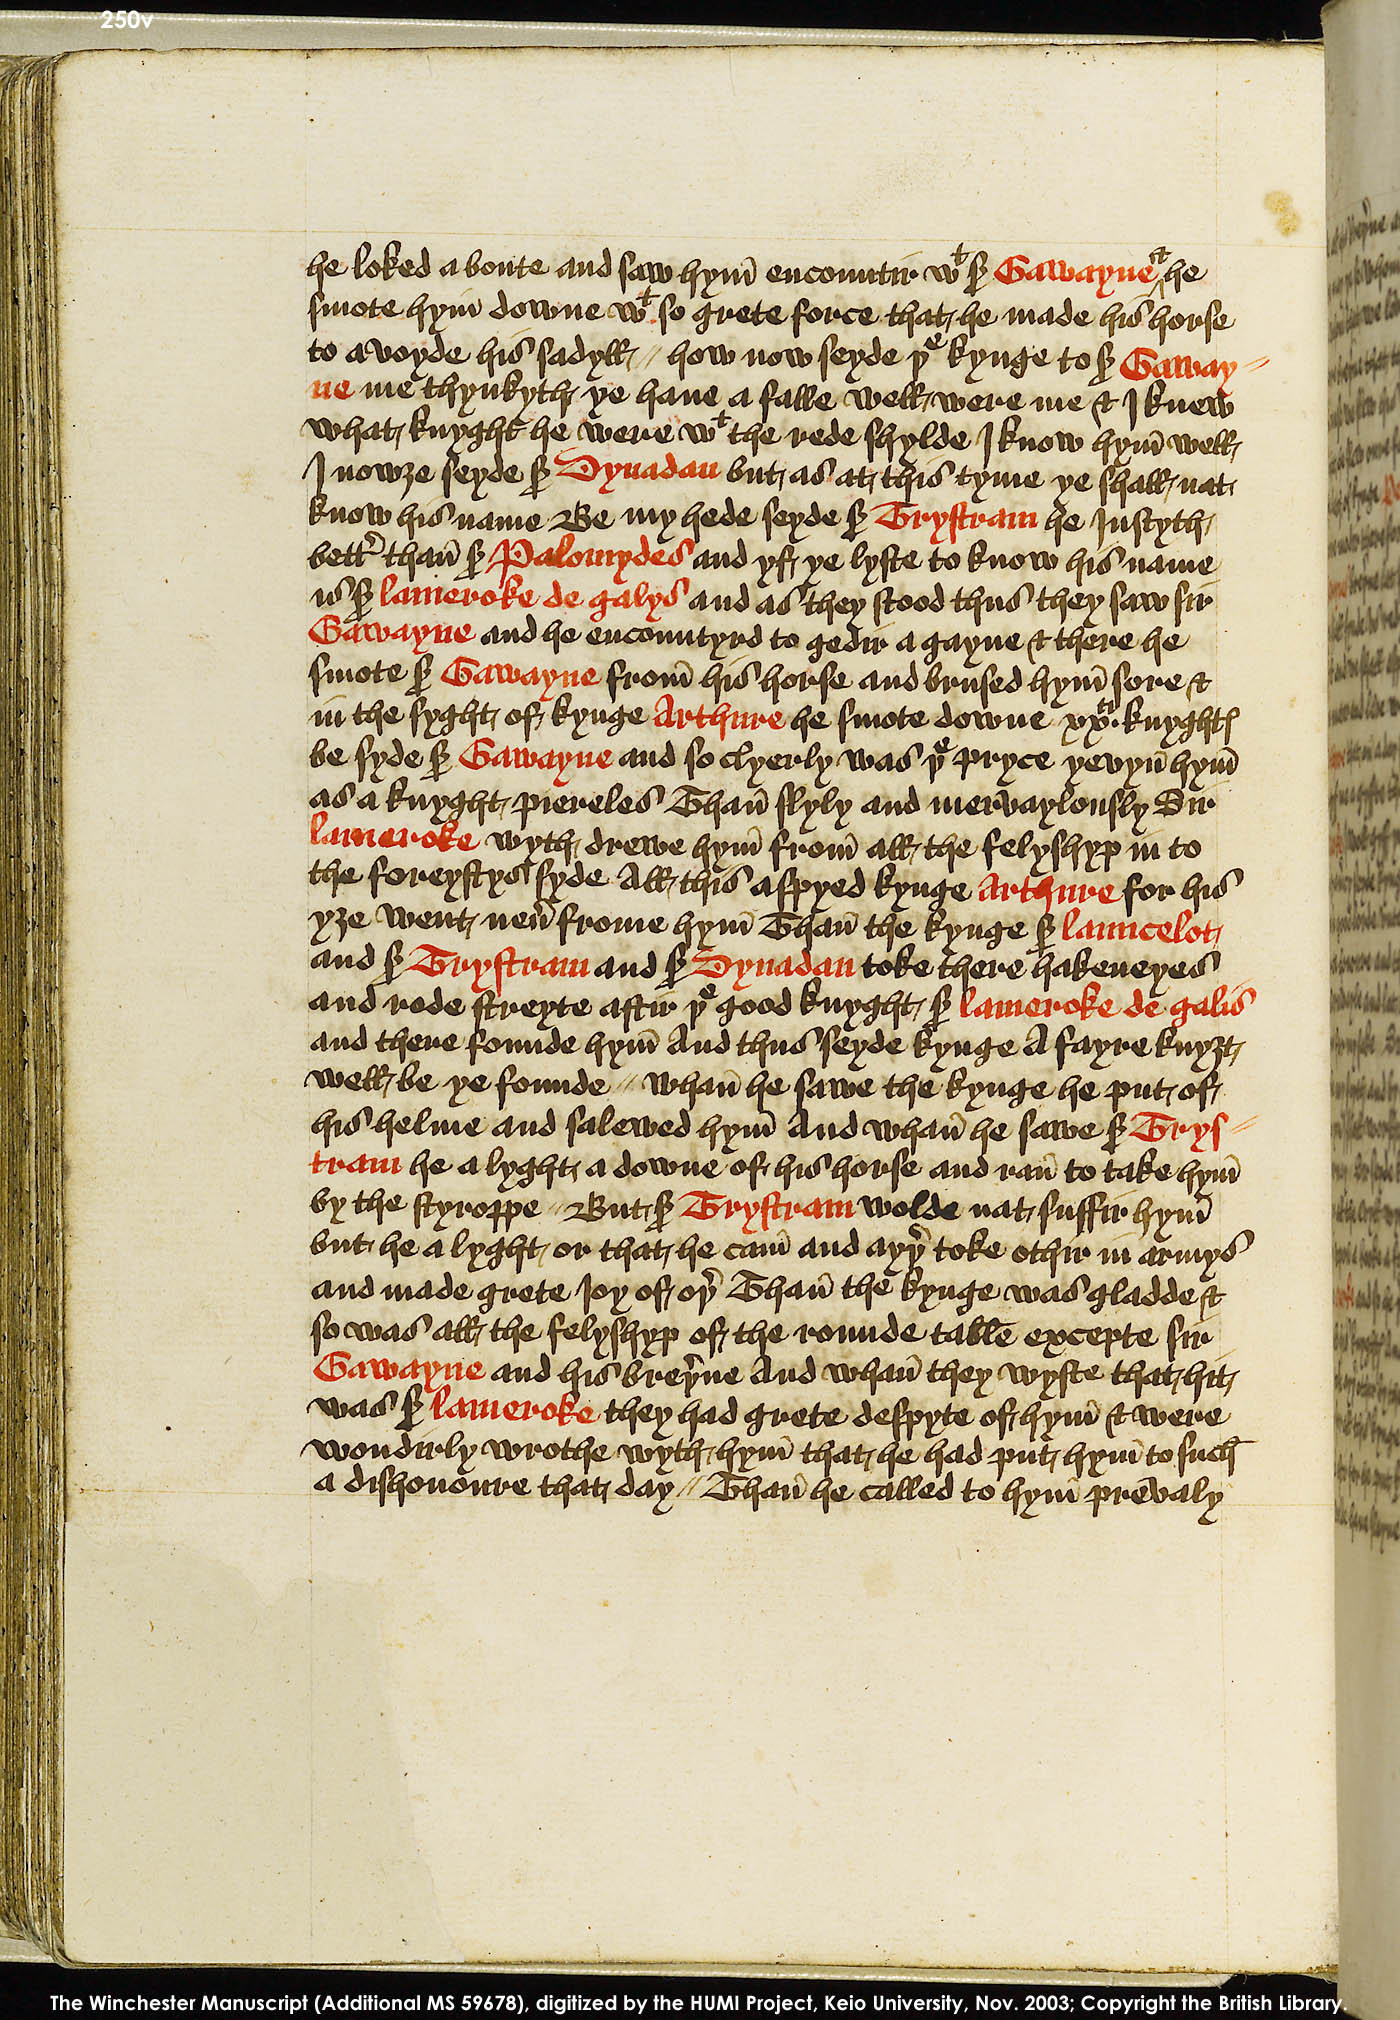 250v
he loked a boute and saw hym̄ encountir wᵗ sʳ Gawayne & he
smote hym̄ downe wᵗ so grete force that he made his horse
to avoyde his sadyll // how now seyde þᵉ kynge to sʳ Gaway-
ne me thynkyth ye haue a falle well were me & I knew
what knyght he were wᵗ the rede shylde I know hym̄ well
I nowȝe seyde sʳ Dynadan but as at this tyme ye shall nat
know his name Be my hede seyde sʳ Trystram he Iustyth
bettʳ thañ sʳ Palomydes and yf ye lyste to know his name
is sʳ lameroke de galys and as they stood thus they saw sir
Gawayne and he encountyrd to gedir a gayne & there he
smote sʳ Gawayne from̄ his horse and brused hym̄ sore &
in the syght of kynge Arthure he smote downe xxᵗⁱ knyghtꝭ
be syde sʳ Gawayne and so clyerly was þᵉ pryce yevyn̄ hym̄
as a knyght piereles Thañ slyly and mervaylously Sir
lameroke wyth drewe hym̄ from̄ all the felyshyp in to
the foreystys syde All this aspyed kynge Arthure for his
yȝe went neuʳ frome hym̄ Thañ the kynge sʳ launcelot
and sʳ Trystram and sʳ Dynadan toke there hakeneyes
and rode streyte aftir þᵉ good knyght sʳ lameroke de galis
and there founde hym̄ And thus seyde kynge A fayre knyȝt
well be ye founde // whañ he sawe the kynge he put of
his helme and salewed hym̄ And whañ he sawe sʳ Trys-
tram he a lyght a downe of his horse and rañ to take hym̄
by the styroppe // But sʳ Trystram wolde nat suffir hym̄
but he a lyght or that he cam̄ and ayþʳ toke othir in armys
and made grete Ioy of oþʳ Thañ the kynge was gladde &
so was all the felyshyp of the rounde table excepte sir
Gawayne and his breþʳne And whañ they wyste that hit
was sʳ lameroke they had grete despyte of hym̄ & were
wondirly wrothe wyth hym̄ that he had put hym̄ to such
a dishonoure that day // Thañ he called to hym̄ prevaly
The Winchester Manuscript (Additional MS 59678), digitized by the HUMI Project, Keio University, Nov. 2003; Copyright the British Library.